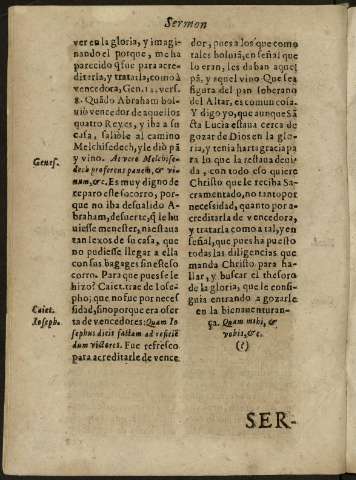 Sermon
ver en la gloria, y imagi-
nando el porque, me ha
parecido q̃ fue para acre-
ditarla, y tratarla, como à
vencedora, Gen. 14. vers.
8. Quãdo Abraham bol-
uiò vencedor de aquellos
quatro Reyes, y iba a su
casa, saliòle al camino
Melchisedech, y le diò pã
y vino. At vero Melchise-
dech proferens panem, & vi-
num, &c. Es muy digno de
reparo este socorro; por-
que no iba desualido A-
braham, de suerte, q̃ le hu
uiesse menester, ni estaua
tan lexos de su casa, que
no pudiesse llegar a ella
con sus bagages sin este so
corro. Para que pues se le
hizo? Caiet. trae de Iose-
pho; que no fue por neces
sidad, sino porque era ofer
ta de vencedores: Quam Io
sephus dicit factam ad reficiẽ
dum victores. Fue refresco
para acreditarle de vence
Genes.
Caiet.
Ioseph.
dor, pues a los que como
tales boluiã, en señal que
lo eran, les daban aquel
pã, y aquel vino. Que sea
figura del pan soberano
del Altar, es comun cosa.
Y digo yo, que aunque Sã
cta Lucia estaua cerca de
gozar de Dios en la glo-
ria, y tenia harta gracia pa
ra lo que la restaua de vi-
da, con todo eso quiere
Christo que le reciba Sa-
cramentado, no tanto por
necessidad, quanto por a-
creditarla de vencedora,
y tratarla como a tal, y en
señal, que pues ha puesto
todas las diligencias que
manda Christo para ha-
llar, y buscar el thesoro
de la gloria, que le consi-
guia entrando a gozarle
en la bienauenturan-
ça. Quam mihi, &
vobis, &c.
(?)
SER-